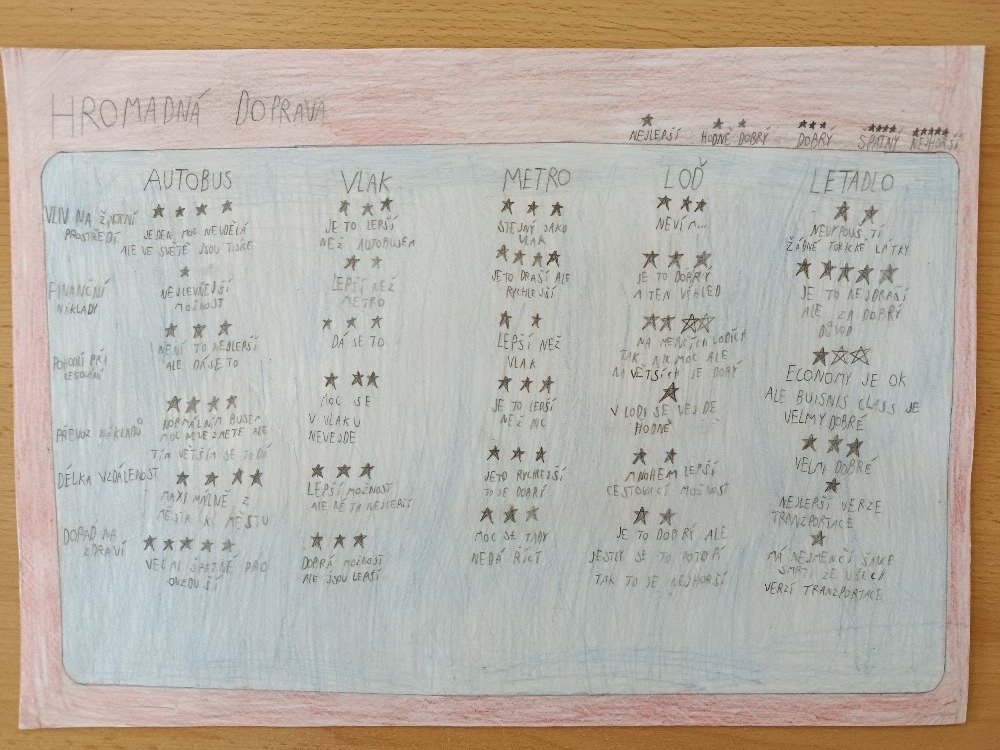 HROMADNÁ DOPRAVA
NEJLEPŠÍ HODNĚ DOBRÝ DOBRÝ ŠPATNÝ NEJHORŠÍ
AUTOBUS VLAK METRO LOĎ LETADLO
VLIV NA ŽIVOTNÍ
PROSTŘEDÍ
JEDEN MOC NEUDĚLÁ
ALE VE SVĚTĚ JSOU TISÍCE
JE TO LEPŠÍ
NEŽ AUTOBUSEM
STEJNÝ JAKO
VLAK
NEVÍM...
NEVYPOUSTÍ
ŽÁDNÉ TOXICKÉ LÁTKY
FINANČNÍ
NÁKLADY
NEJLEVNĚJŠÍ
MOŽNOST
LEPŠÍ NEŽ
METRO
JETO DRAŠÍ ALE
RYCHLEJŠÍ
JE TO DOBRÝ
A TEN VÝHLED
JE TO NEJDRAŠÍ
ALE ZA DOBRÝ
DŮVOD
POHODLÍ PŘI
CESTOVÁNÍ
NENÍ TO NEJLEPŠÍ
ALE DÁ SE TO
DÁ SE TO
LEPŠÍ NEŽ
VLAK
NA MENŠÍCH LODÍCH
TAK NIC MOC ALE
NA VĚTŠÍCH JE DOBÝ
ECONOMY JE OK
ALE BUISNIS CLASS JE
VELMY DOBRÉ
PŘEVOZ NÁKLADŮ
NORMÁLNÍM BUSEM
MOC NEVEZMETE ALE
TÍM VĚTŠÍM SE TO DÁ
MOC SE
V VLAKU
NEVEJDE
JE TO LEPŠÍ
NEŽ NIC
V LODI SE VEJDE
HODNĚ
VELMI DOBRÉ
DÉLKA VZDÁLENOST
MAXIMÁLNĚ Z
MĚSTA KE MĚSTU
LEPŠÍ MOŽNOST
ALE NE TA NEJLEPŠÍ
JETO RYCHLEJŠÍ
TO JE DOBRÍ
MNOHEM LEPŠÍ
CESTOVACÍ MOŽNOST
NEJLEPŠÍ VERZE
TRANZPORTACE
DOPAD NA
ZDRAVÍ
VELMI ŠPATNÉ PRO
OVZDUŠÍ
DOBRÁ MOŽNOST
ALE JSOU LEPŠÍ
MOC SE TADY
NEDÁ ŘÍCT
JE TO DOBRÝ ALE
JESTLY SE TO POTOPÍ
TAK TO JE NEJHORŠÍ
MÁ NEJMENČÍ ŠANCE
SMRTI ZE VŠECH
VERZÍ TRANZPORTACE